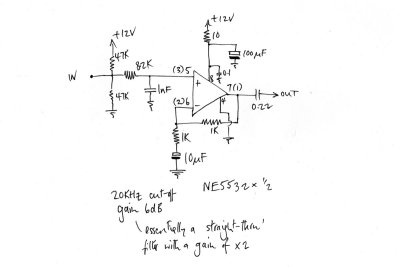 +12V
+12V
10
100µF
47K
82K
(3)5
0.1
8
IN
+
7(1)
OUT
1nF
47K
(2)6
-
4
0.22
1K
1K
10µF
20KHz cut-off
gain 6dB
NE5532 x 1/2
essentially a 'straight-thru'
filter with a gain of x2